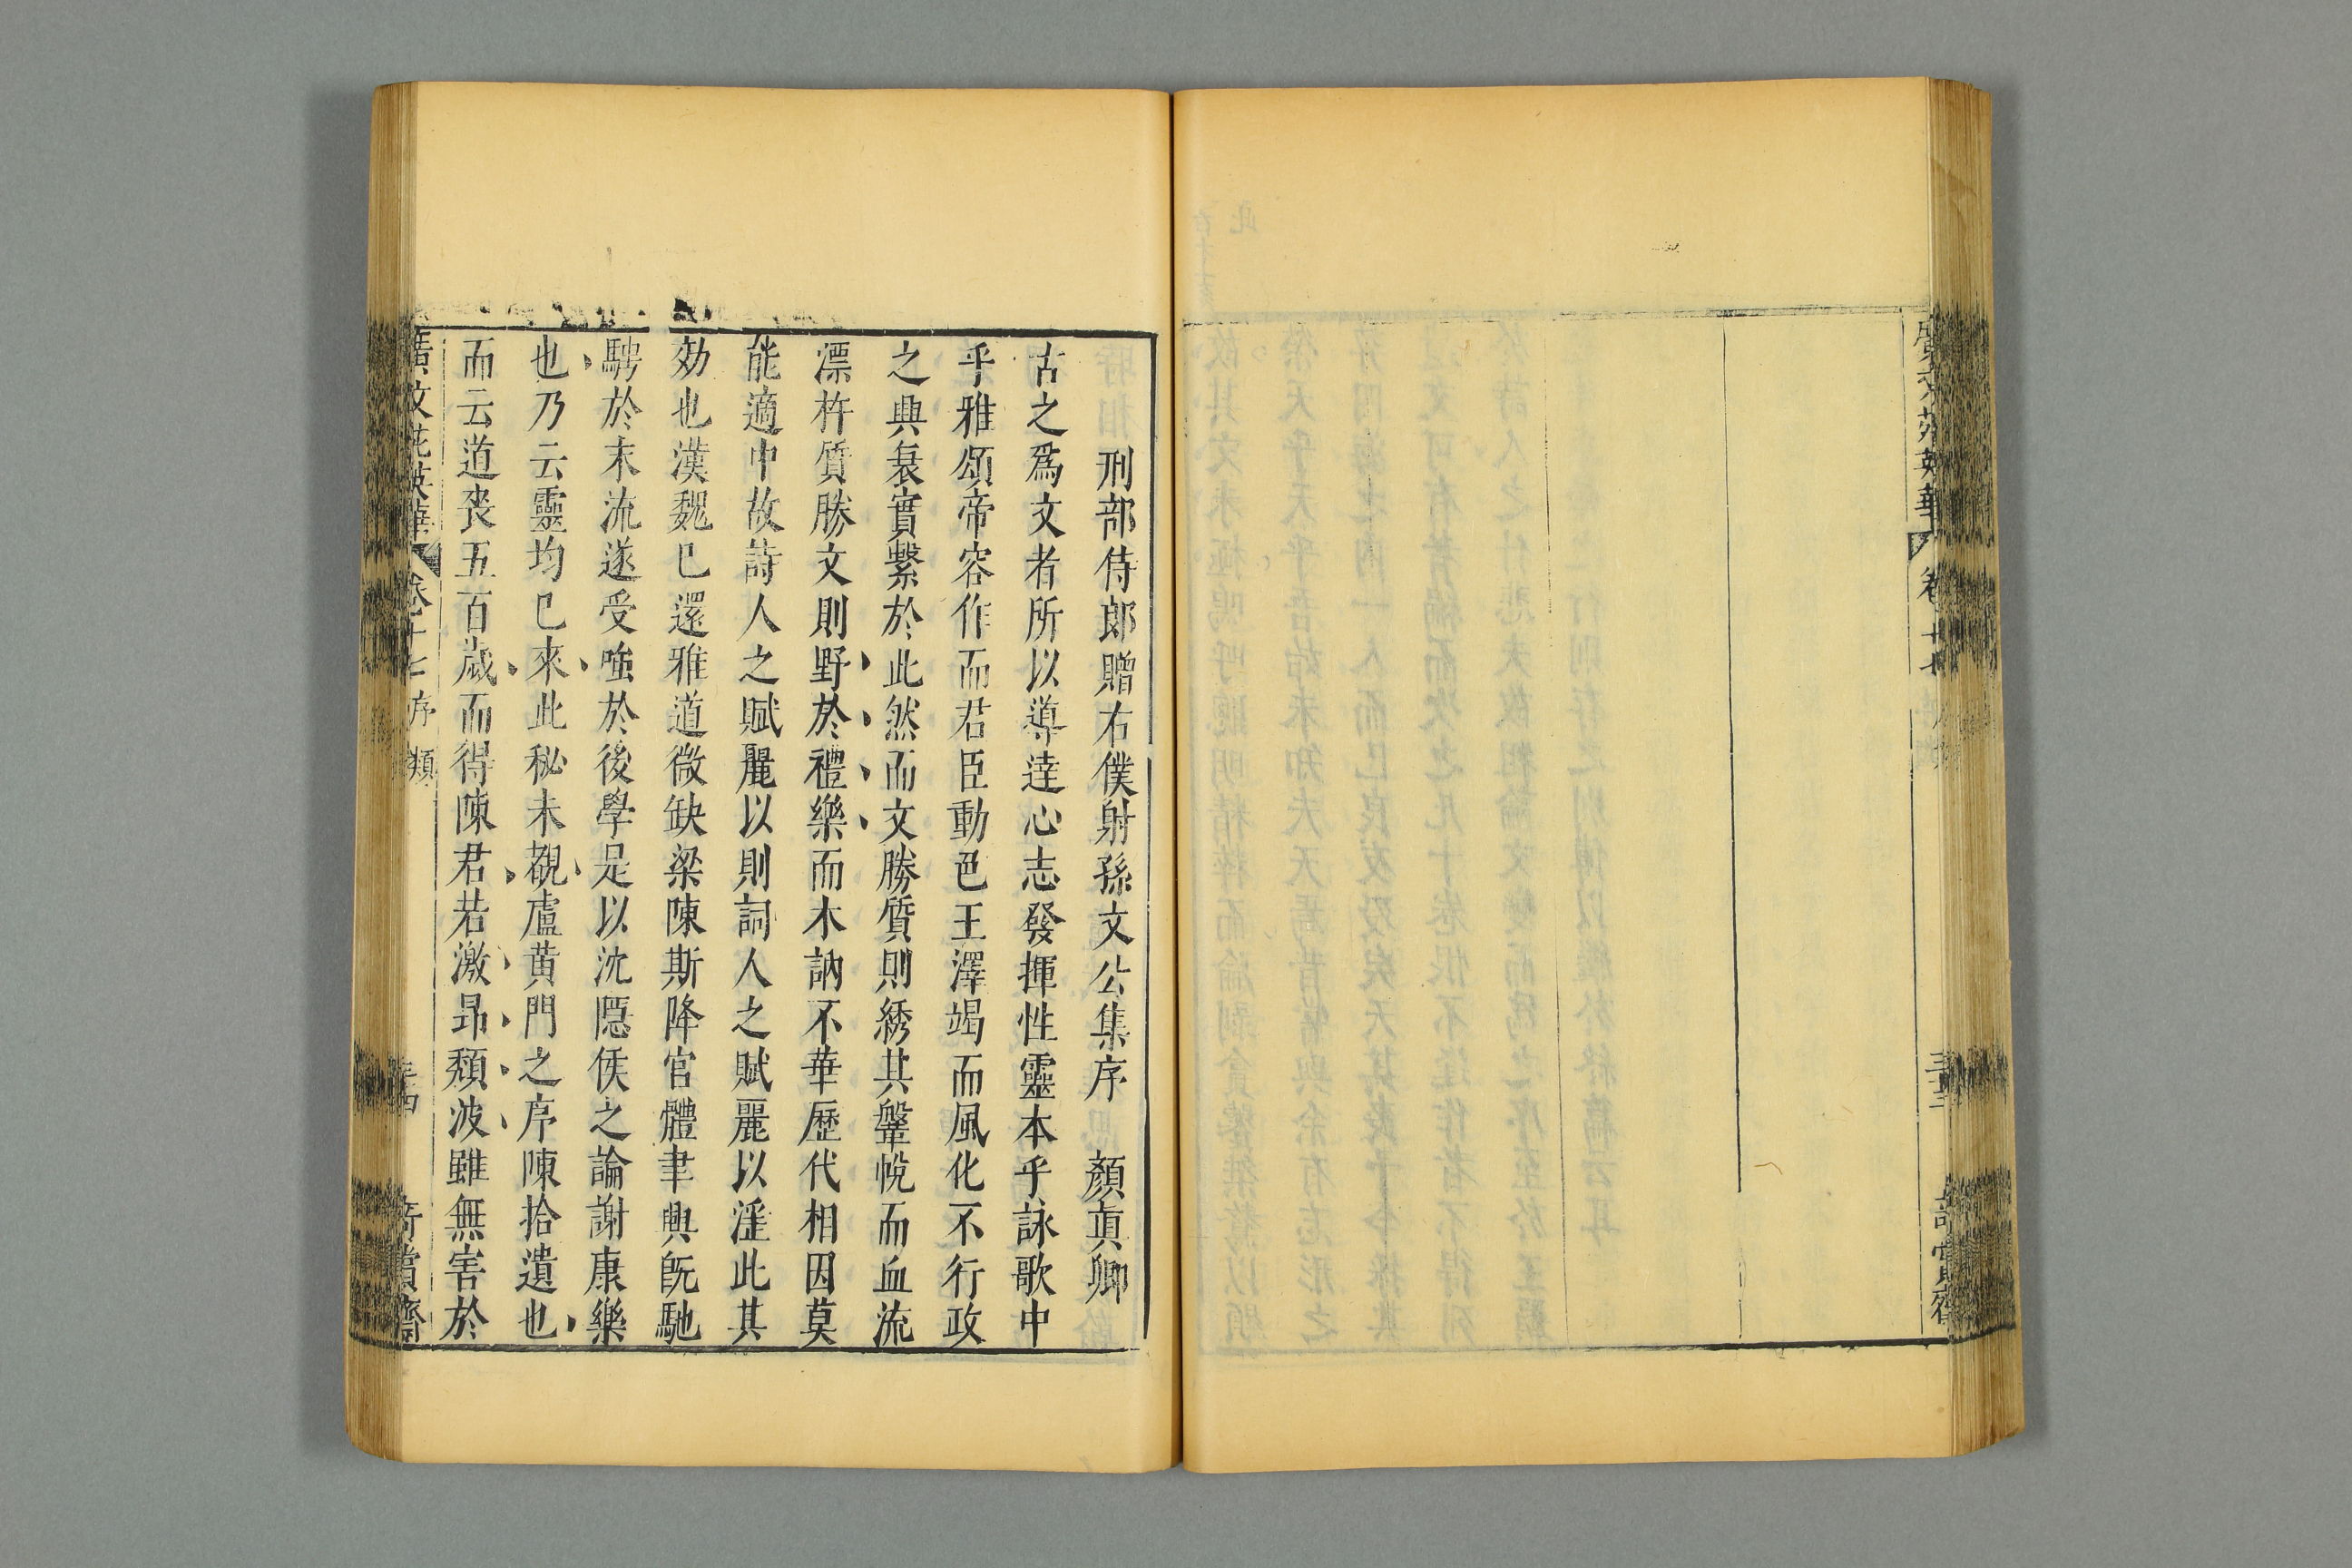 刑部侍郎贈右僕射孫文公集序 顏真卿
古之爲文者所以導達心志發揮性靈本乎詠歌中
乎雅頌帝容作而君臣動色王澤竭而風化不行政
之興衰實繫於此然而文勝質則綉其鞶帨而血流
漂杵質勝文則野於禮樂而木訥不華歷代相因莫
能適中故詩人之賦麗以則詞人之賦麗以淫此其
効也漢魏已還雅道微缺梁陳斯降官體聿興旣馳
騁於末流遂受嗤於後學是以沈隱侯之論謝康樂
也乃云靈均已來此秘未覩盧黄門之序陳拾遺也
而云道喪五百歲而得陳君若激昂頹波雖無害於
廣文苑英華 卷十七 序類 三十四 奇賞齋